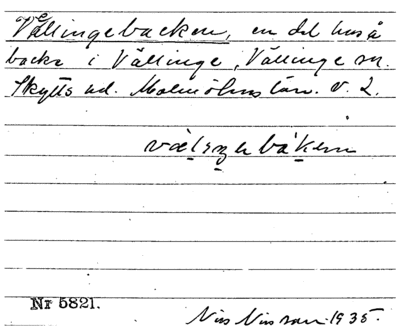 Vällingebacken, en del hus å
backe i Vällinge, Vällinge sn.
Skytts hd. Malmöhus län. v. 2.
Nr 5821.
Nils Nilsson 1935.